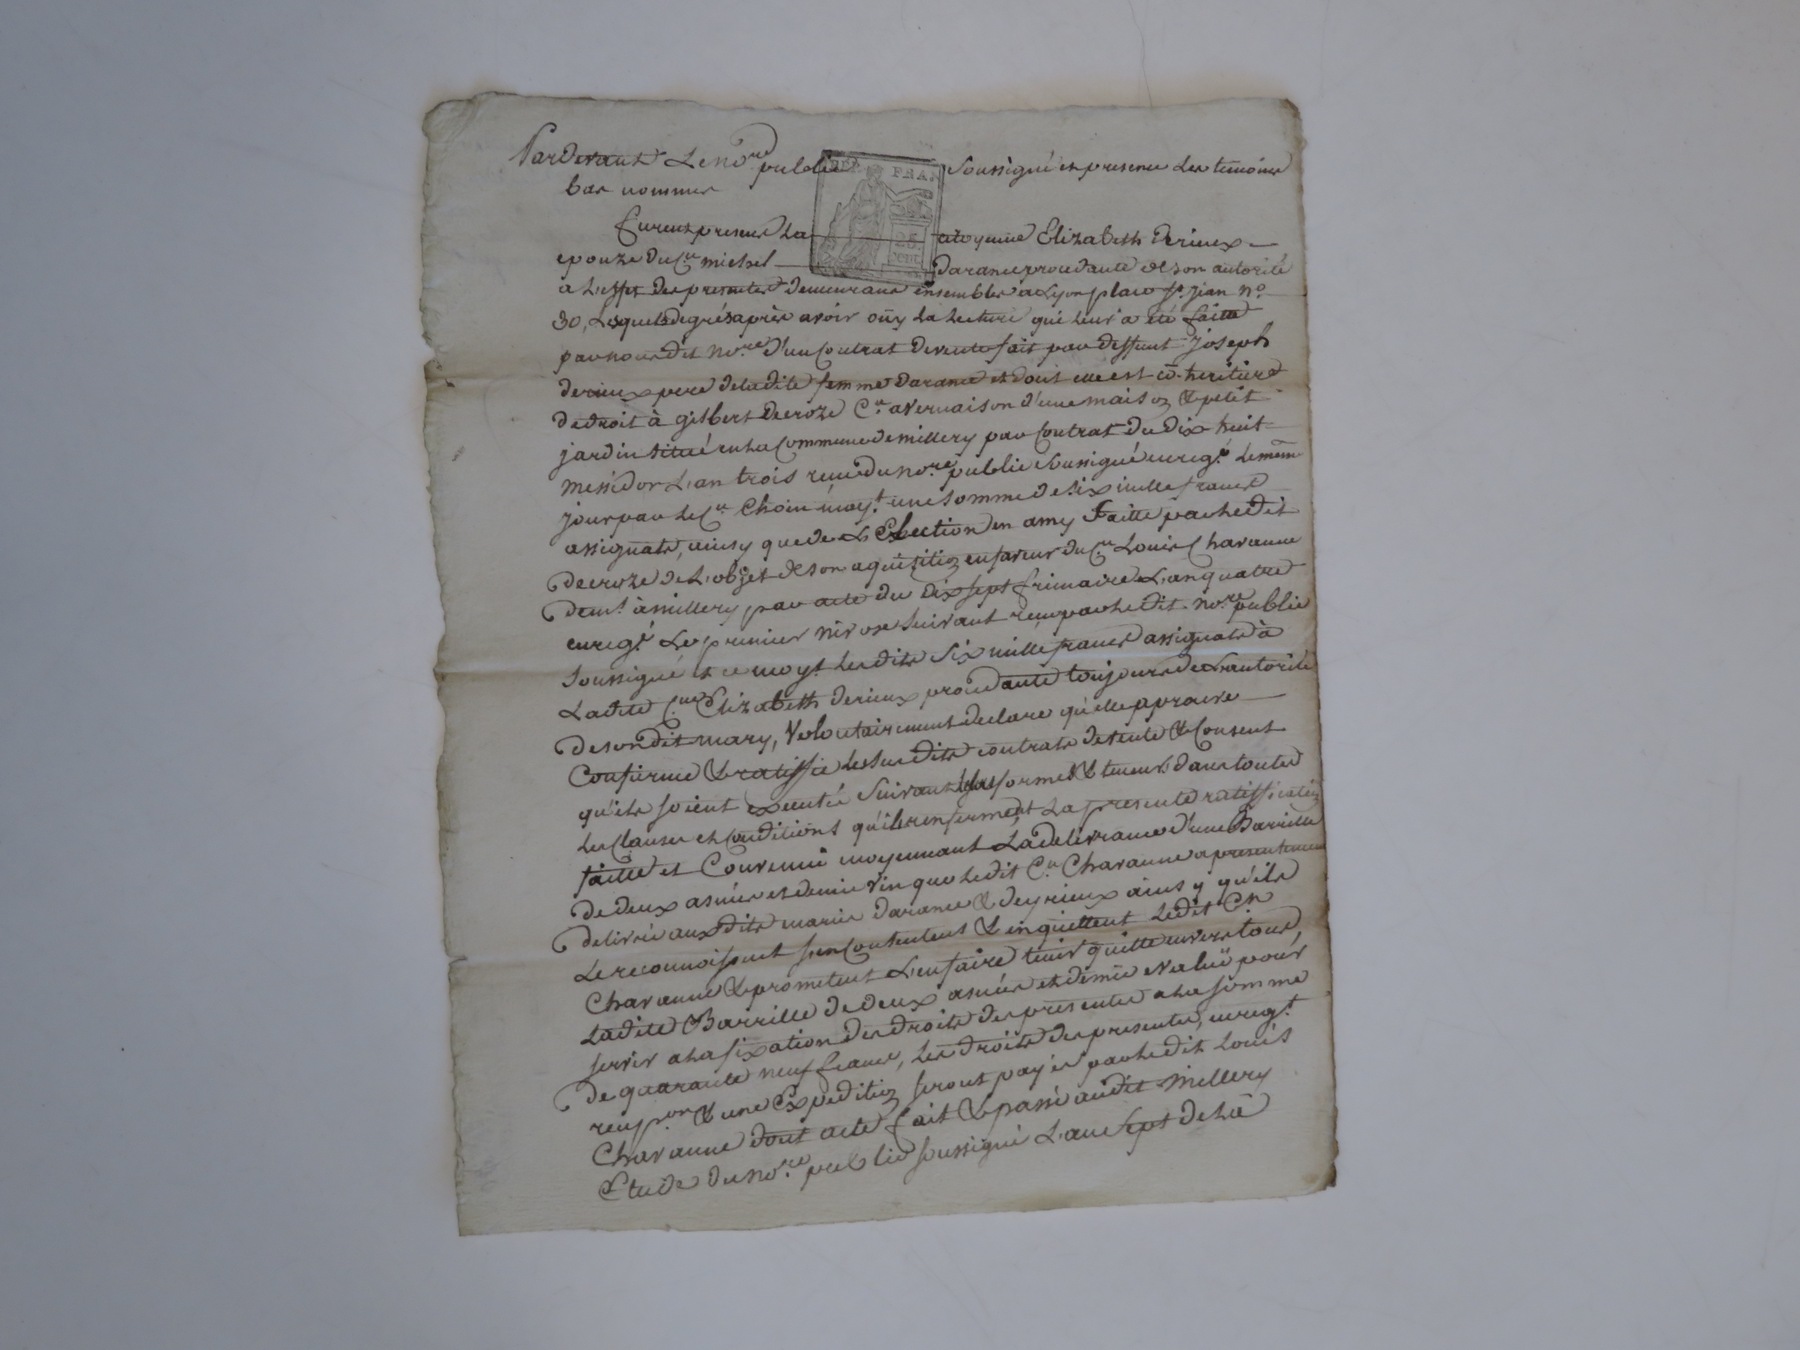 Pardevant Le no.re public soussigné et presence des temoins
bas nommes
REP. FRA
25
CENT.
furent presens La citoyenne Elizabeth Derieux
epouze du C.en michel Darance procedante de son autorité
a L'effet des presentes demeurans ensembles a Lyon place S.t jean n.o
30, Lesquels de grés après avoir oüy la Lecture qui leur a été faitte
par nous dit no.re d'un Contrat de vente fait par deffunt joseph
derieux pere de ladite femme darance et dont elle est co-heritiere
de droit à gilbert Decroze C.en a vernaison d'une maison & petit
jardin situé en la Commune de millery par Contrat du dix huit
messidor L'an trois receu du no.re public soussigné enreg.é le même
jour par le C.en Choin moy.t une somme de six mille francs
assignats, ainsy que de L'Election en amy faitte par ledit
Decroze de L'objet de son aquisition en faveur du C.en Louis Charanne
dem.t à millery par acte du dix sept frimaire L'an quatre
enreg.é Le premier nivose suivant reçu par le dit no.re public
soussigné et ce moy.t lesdits six mille francs assignats à
Ladite C.ne Elizabeth derieux procedante toujours de L'autorité
de son dit mary, Volontairement declare qu'elle approuve
Confirme & ratiffie les susdits contrats de vente & Consent
qu'ils soient executés suivant leurs formes & teneurs dans toutes
les Clauses et Conditions qu'ils renferment La presente ratiffication
faitte et Convenue moyennant La delivrance d'une Barrille
de deux asnées et demie vin que ledit C.en Charanne a presentement
delivrée auxdits mariés darance & deyrieux ainsy qu'ils
Le reconnoissent s'en Contentent & en quittent Ledit C.en
Charanne & promettent L'en faire tenir quitte envers tous,
Ladite Barrille de deux asnées et demie evaluë pour
servir a la fixation des droits des presentes a la somme
de quarante neuf francs, les droits des presentes, enreg.t
& une Expedition seront payés par ledit Louis
Charanne dont acte fait & passé audit millery
Etude du no.re public soussigné L'an sept de la